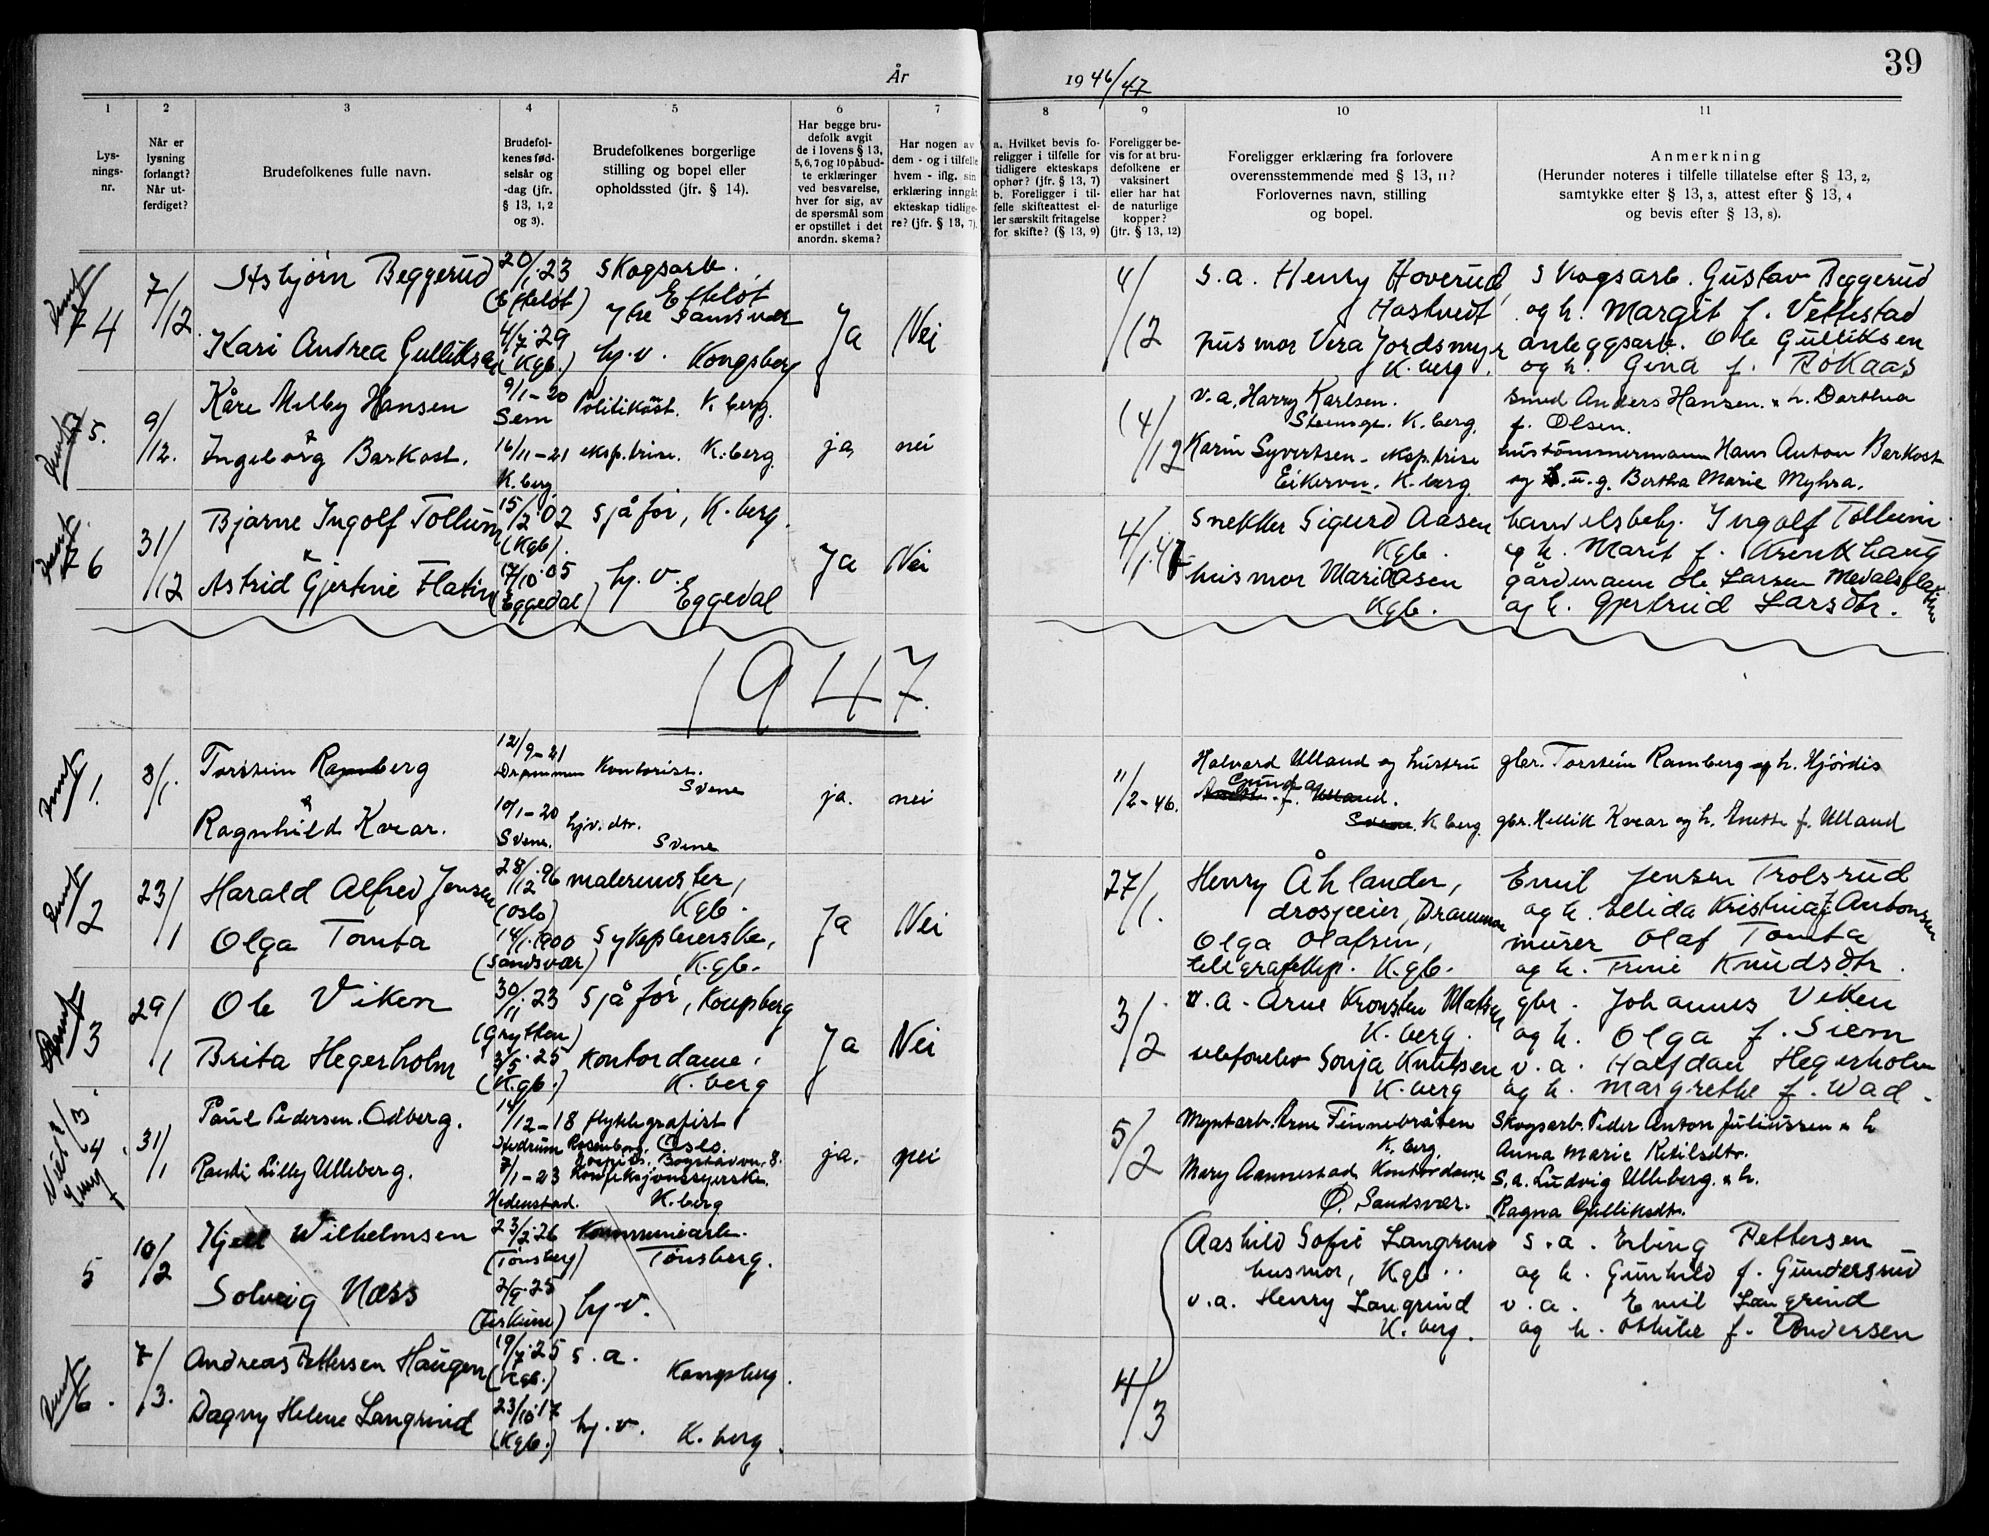 39
År 1946/47
1 2 3 4 5 6 7 8 9 10 11
Lys-
nings-
nr.
Når er
lysning
forlangt?
Når ut-
ferdiget?
Brudefolkenes fulle navn.
Brudefol-
kenes fød-
selsår og
-dag (jfr.
§ 13, 1, 2
og 3).
Brudefolkenes borgerlige
stilling og bopel eller
opholdssted (jfr. § 14).
Har begge bru-
defolk avgit
de i lovens § 13,
5, 6, 7 og 10 påbud-
te erklæringer
ved besvarelse,
hver for sig, av
de spørsmål som
er opstillet i det
anordn. skema?
Har nogen av
dem - og i tilfelle
hvem - iflg. sin
erklæring inngått
ekteskap tidlige-
re? (jfr. § 13, 7).
a. Hvilket bevis fo-
religger i tilfelle for
tidligere ekteskaps
ophør? (jfr. § 13, 7)
b. Foreligger i til-
felle skifteattest el-
ler særskilt fritagelse
for skifte? (§ 13, 9)
Foreligger be-
vis for at bru-
defolkene er
vaksinert
eller har hat
de naturlige
kopper?
(jfr. § 13, 12)
Foreligger erklæring fra forlovere
overensstemmende med § 13, 11?
Forlovernes navn, stilling
og bopel.
Anmerkning
(Herunder noteres i tilfelle tillatelse efter § 13, 2,
samtykke efter § 13, 3, attest efter § 13, 4
og bevis efter § 13, 8).
74 7/12 Asbjørn Beggerud 20/1.23 (Efteløt) Skogsarb. Efteløt Ytre Sandsvær
Kari Andrea Gulliksen 4/7.29 (Kgb.) hj.v. Kongsberg Ja Nei
4/12 s.a. Henry Hoverud, Hostvedt
husmor Vera Jordsmyr K.berg.
Skogsarb. Gustav Beggerud
og h. Margit f. Vettestad
anleggsarb. Ole Gulliksen
og h. Gina f. Bøkaas
75. 9/12. Kåre Melby Hansen 9/1-20 Sem Politikonst. K.berg.
Ingeborg Barkost. 16/11-21 K.berg eksp.trise. K.berg. ja nei
14/12 v.a. Harry Karlsen. K.berg.
Karin Syvertsen - eksp.trise
Eikerveien. K.berg.
smed Anders Hansen. & h. Dorthea
f. Olsen.
hustømmermann Hans Anton Barkost
og h. u.g. Bertha Marie Myhra.
76 31/12 Bjarne Ingolf Tollum 15/2.02 (Kgb). sjåfør, K.berg.
Astrid Gjertine Flatin 17/10.05 (Eggedal) hj.v. Eggedal Ja Nei
4/1.47 Snekker Sigurd Aasen Kgb.
husmor Mari Aasen Kgb.
handelsbetj. Ingolf Tollum
og h. Marit f. Krenkhaug
gårdmann Ole Larsen Medalsflatin
og h. Gjertrud Larsdtr.
1947.
1. 3/1. Torstein Ramberg 12/9-21 Drammen Kontorist. Svene
Ragnhild Kvear. 10/1-20 Svene. hjv. dtr. Svene ja. nei
11/2-46. Halvard Ulland og hustru
Gunda f. Ulland. Svene. K.berg.
gbr. Torstein Ramberg og h. Hjørdis
gbr. Hellik Kvear og h. Anette f. Ulland
2 23/1 Harald Alfred Jensen 28/12.96 (Oslo) malermester, Kgb.
Olga Tomta 14/1.1900 (Sandsvær) Sykepleierske, K.gb. Ja Nei
27/1. Henry Åhlander,
drosjeeier, Drammen
Olga Olafsen,
telegrafeksp. K.gb.
Emil Jensen Trolsrud
og h. Ellida Kristina f. Antonsen
murer Olaf Tomta
og h. Trine Knudsdtr.
3 29/1 Ole Viken 30/11.23 (Grytten) sjåfør, Kongsberg
Brita Hegerholm 3/5.25 (K.gb.) Kontordame, K.berg Ja Nei
3/2 v.a. Arne K.berg.
telefonelev Sonja Knutsen K.berg
gbr. Johannes Viken
og h. Olga f. Siem
v.a. Halfdan Hegerholm
og h. Margrethe f. Wad.
4 31/1 Paul Pedersen Odberg. 14/12-18 Hedrum Oslo.
Randi Lilly Ulleberg. 7/1-23 Hedenstad. Konfeksjonssyerske. K.berg ja. nei
5/2 Myntarb. Arne Finnebråten K.berg.
Mary Aannestad Kontordame
Ø. Sandsvær.
Skogsarb. Peder Anton Juliussen & h
Anna Marie Ketilsdtr.
S.a. Ludvig Ulleberg. & h.
Ragna Gulliksdtr.
5 10/2 Kjell Wilhelmsen 23/2.26 (Tønsberg) Kommunearb. Tønsberg.
Solveig Næss 2/9.25 hj.v.
6. 7/3. Andreas Pettersen Haugen 19/7.25 (Kgb.) s.a. Kongsberg.
Dagny Helene Langrind 23/10.17 (Kgb.) hj.v. K.berg.
4/3
Aashild Sofie Langrind
husmor, Kgb.
v.a. Henry Langrind
K.berg.
s.a. Erling Pettersen
og h. Gunhild f. Gundersrud
v.a. Emil Langrind
og h. Othilie f. Andersen